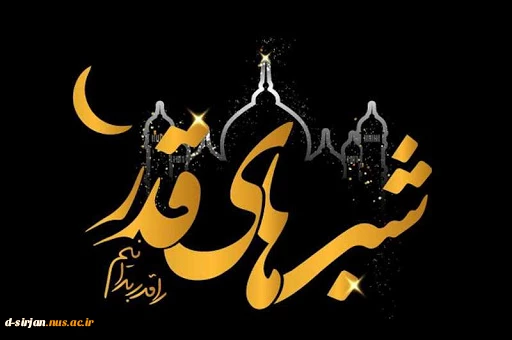 شب‌های قدر
را قدر بدانیم
d-sirjan.nus.ac.ir